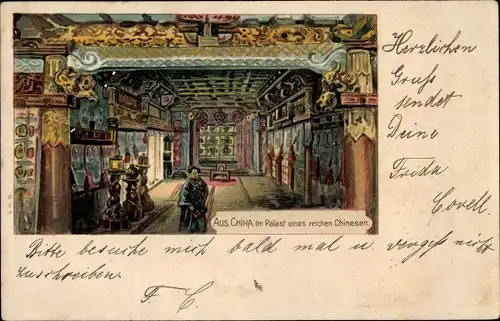 AUS CHINA: Im Palast eines reichen Chinesen.
Herzlichen
Gruß
sendet
Deine
Frida
Covell.
Bitte besuche mich bald mal u. vergiß nicht
zuschreiben.
F. C.